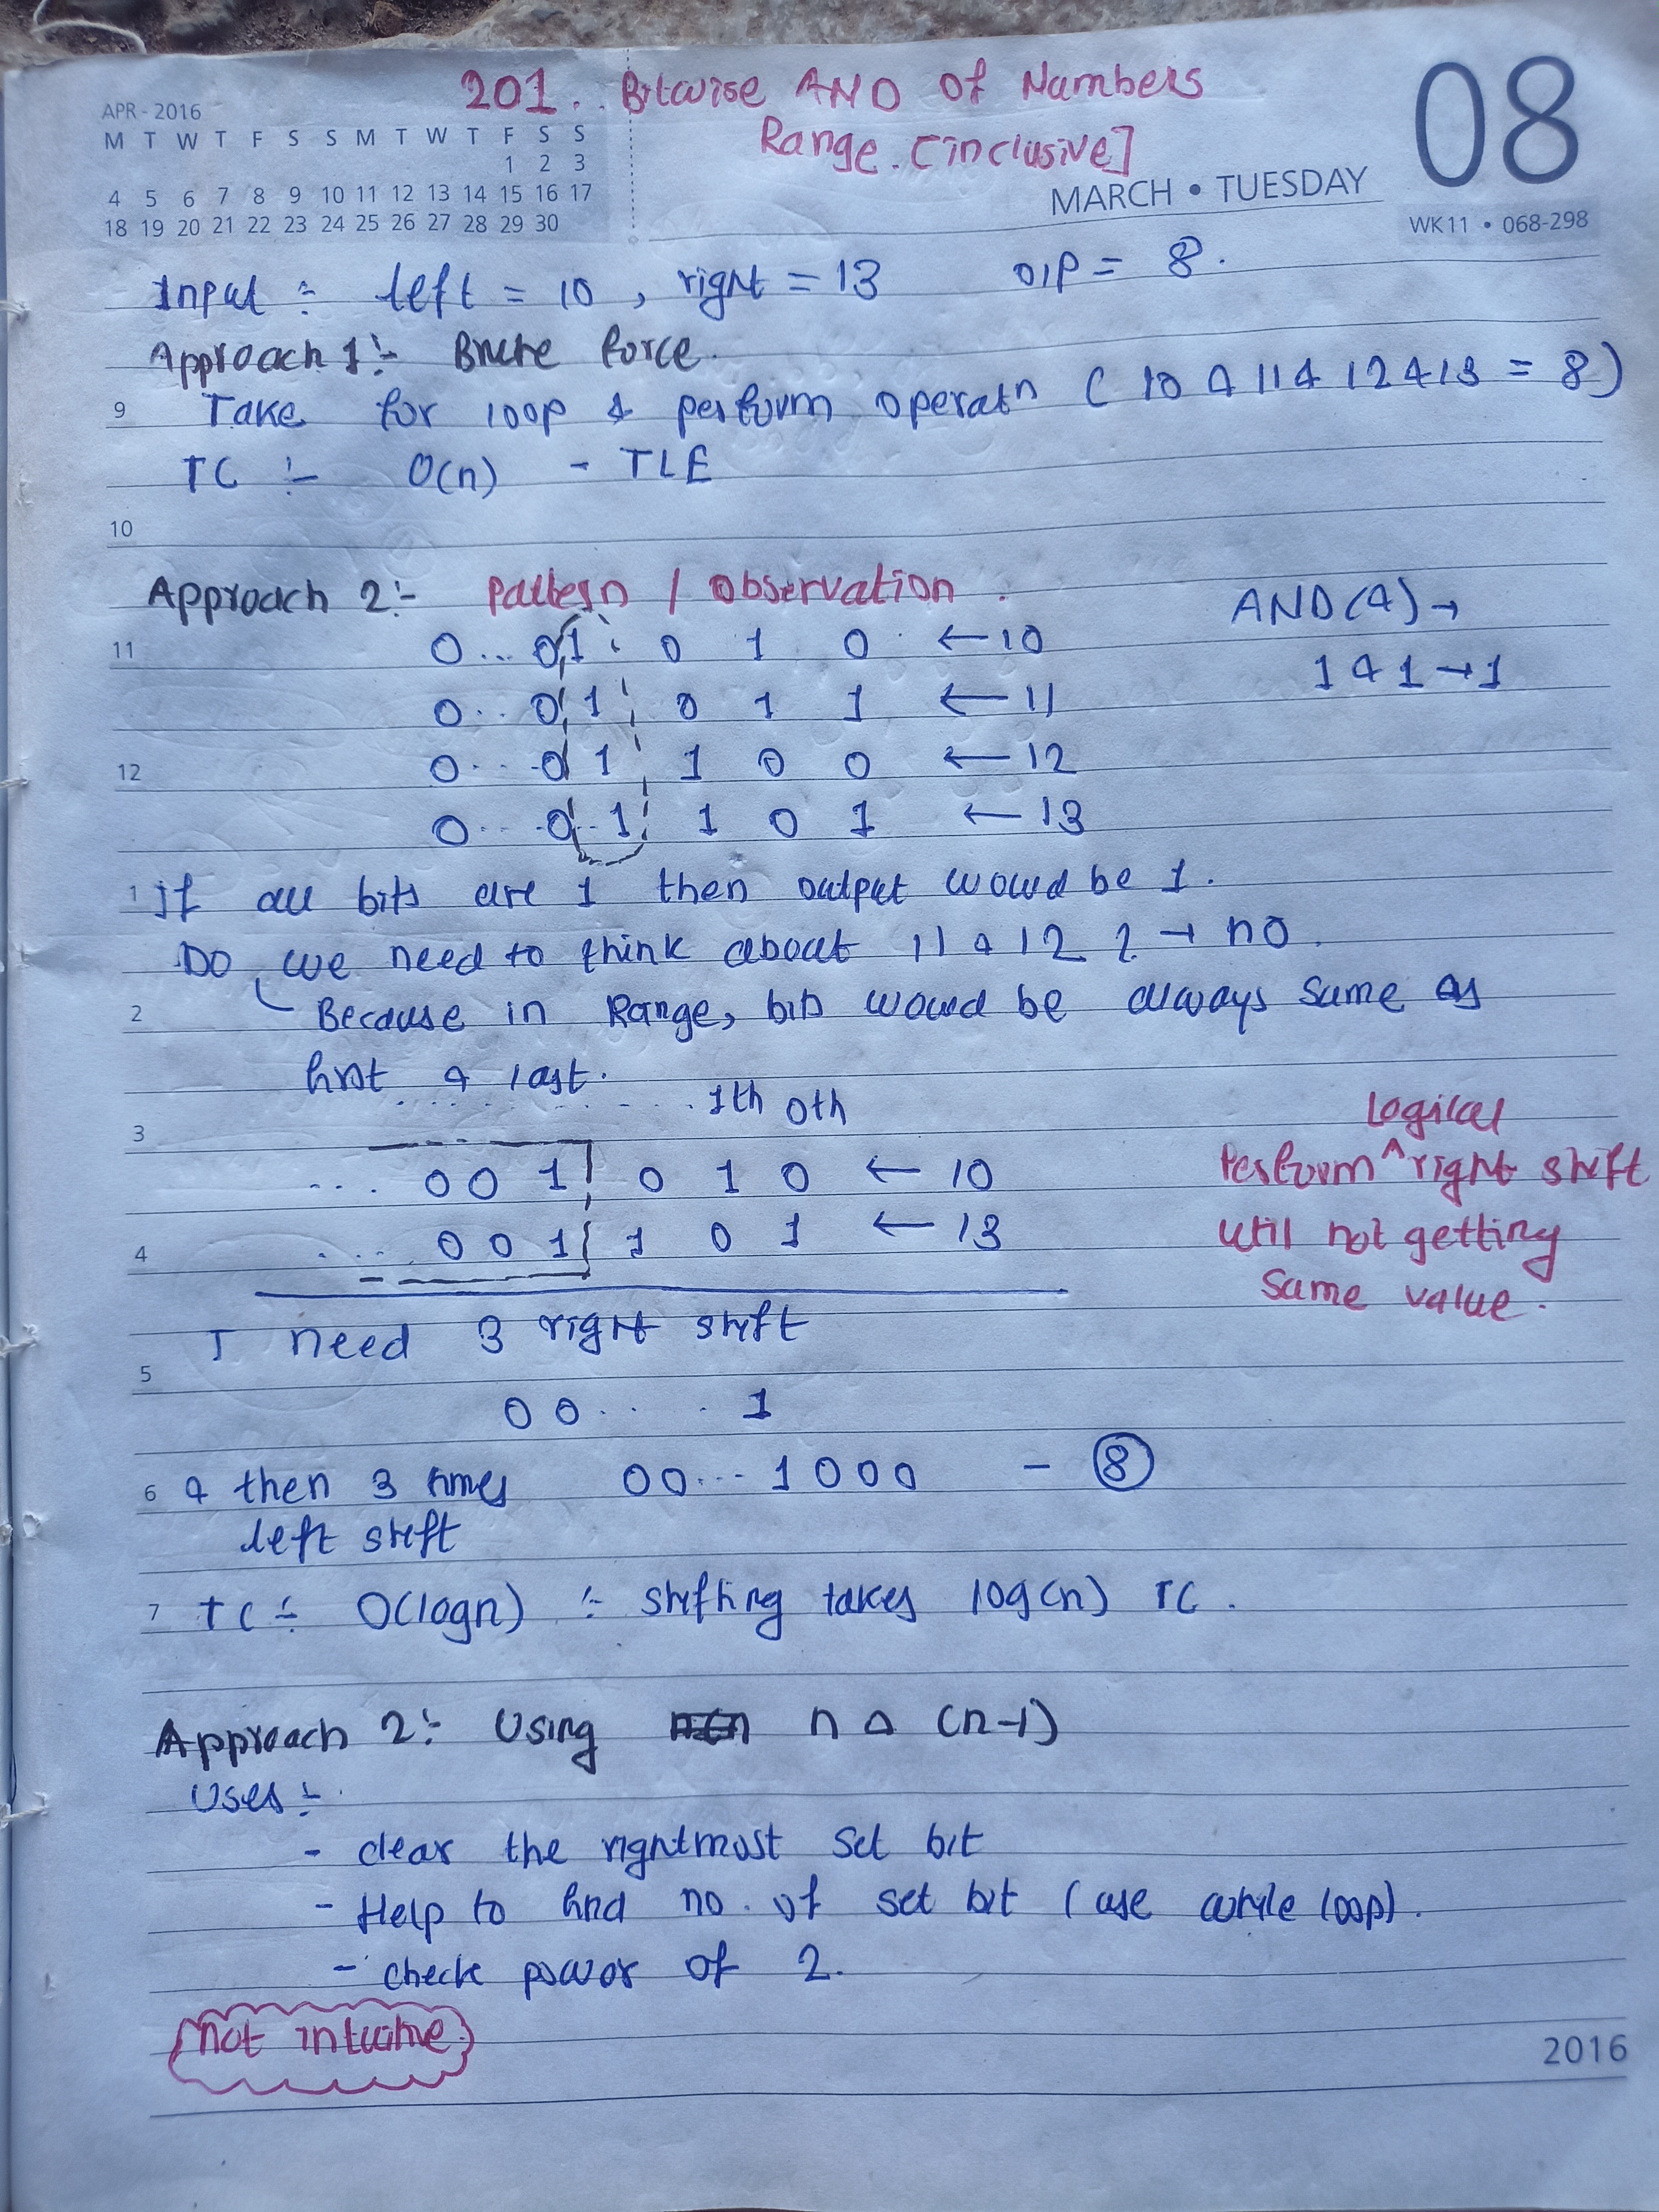 201. Bitwise AND of Numbers
Range. [inclusive]
APR - 2016
M T W T F S S M T W T F S S
1 2 3
4 5 6 7 8 9 10 11 12 13 14 15 16 17
18 19 20 21 22 23 24 25 26 27 28 29 30
MARCH • TUESDAY
08
WK11 • 068-298
Input :- left = 10, right = 13 O/P = 8.
Approach 1:- Brute force.
9 Take for loop & perform operatn ( 10 & 11 & 12 & 13 = 8)
TC :- O(n) - TLE
10
Approach 2:- Pattern / Observation.
AND(&) →
1 & 1 → 1
11 0... 0 1 0 1 0 ← 10
0.. 0 1 0 1 1 ← 11
12 0... 0 1 1 0 0 ← 12
0... 0 1 1 0 1 ← 13
1 If all bits are 1 then output would be 1.
Do we need to think about 11 & 12 ? → no.
2 Because in Range, bits would be always same as
first & last.
3 ... 1th 0th
... 0 0 1 0 1 0 ← 10
4 ... 0 0 1 1 0 1 ← 13
Logical
Perform ^ right shift
until not getting
same value.
I need 3 right shift
5
0 0 . . . 1
6 & then 3 times 00... 1000 - 8
left shift
7 TC :- O(logn) :- shifting takes log(n) TC.
Approach 2:- Using n & (n-1)
Uses :-
- clear the rightmost set bit
- Help to find no. of set bit (use while loop).
- check power of 2.
not intuitive
2016